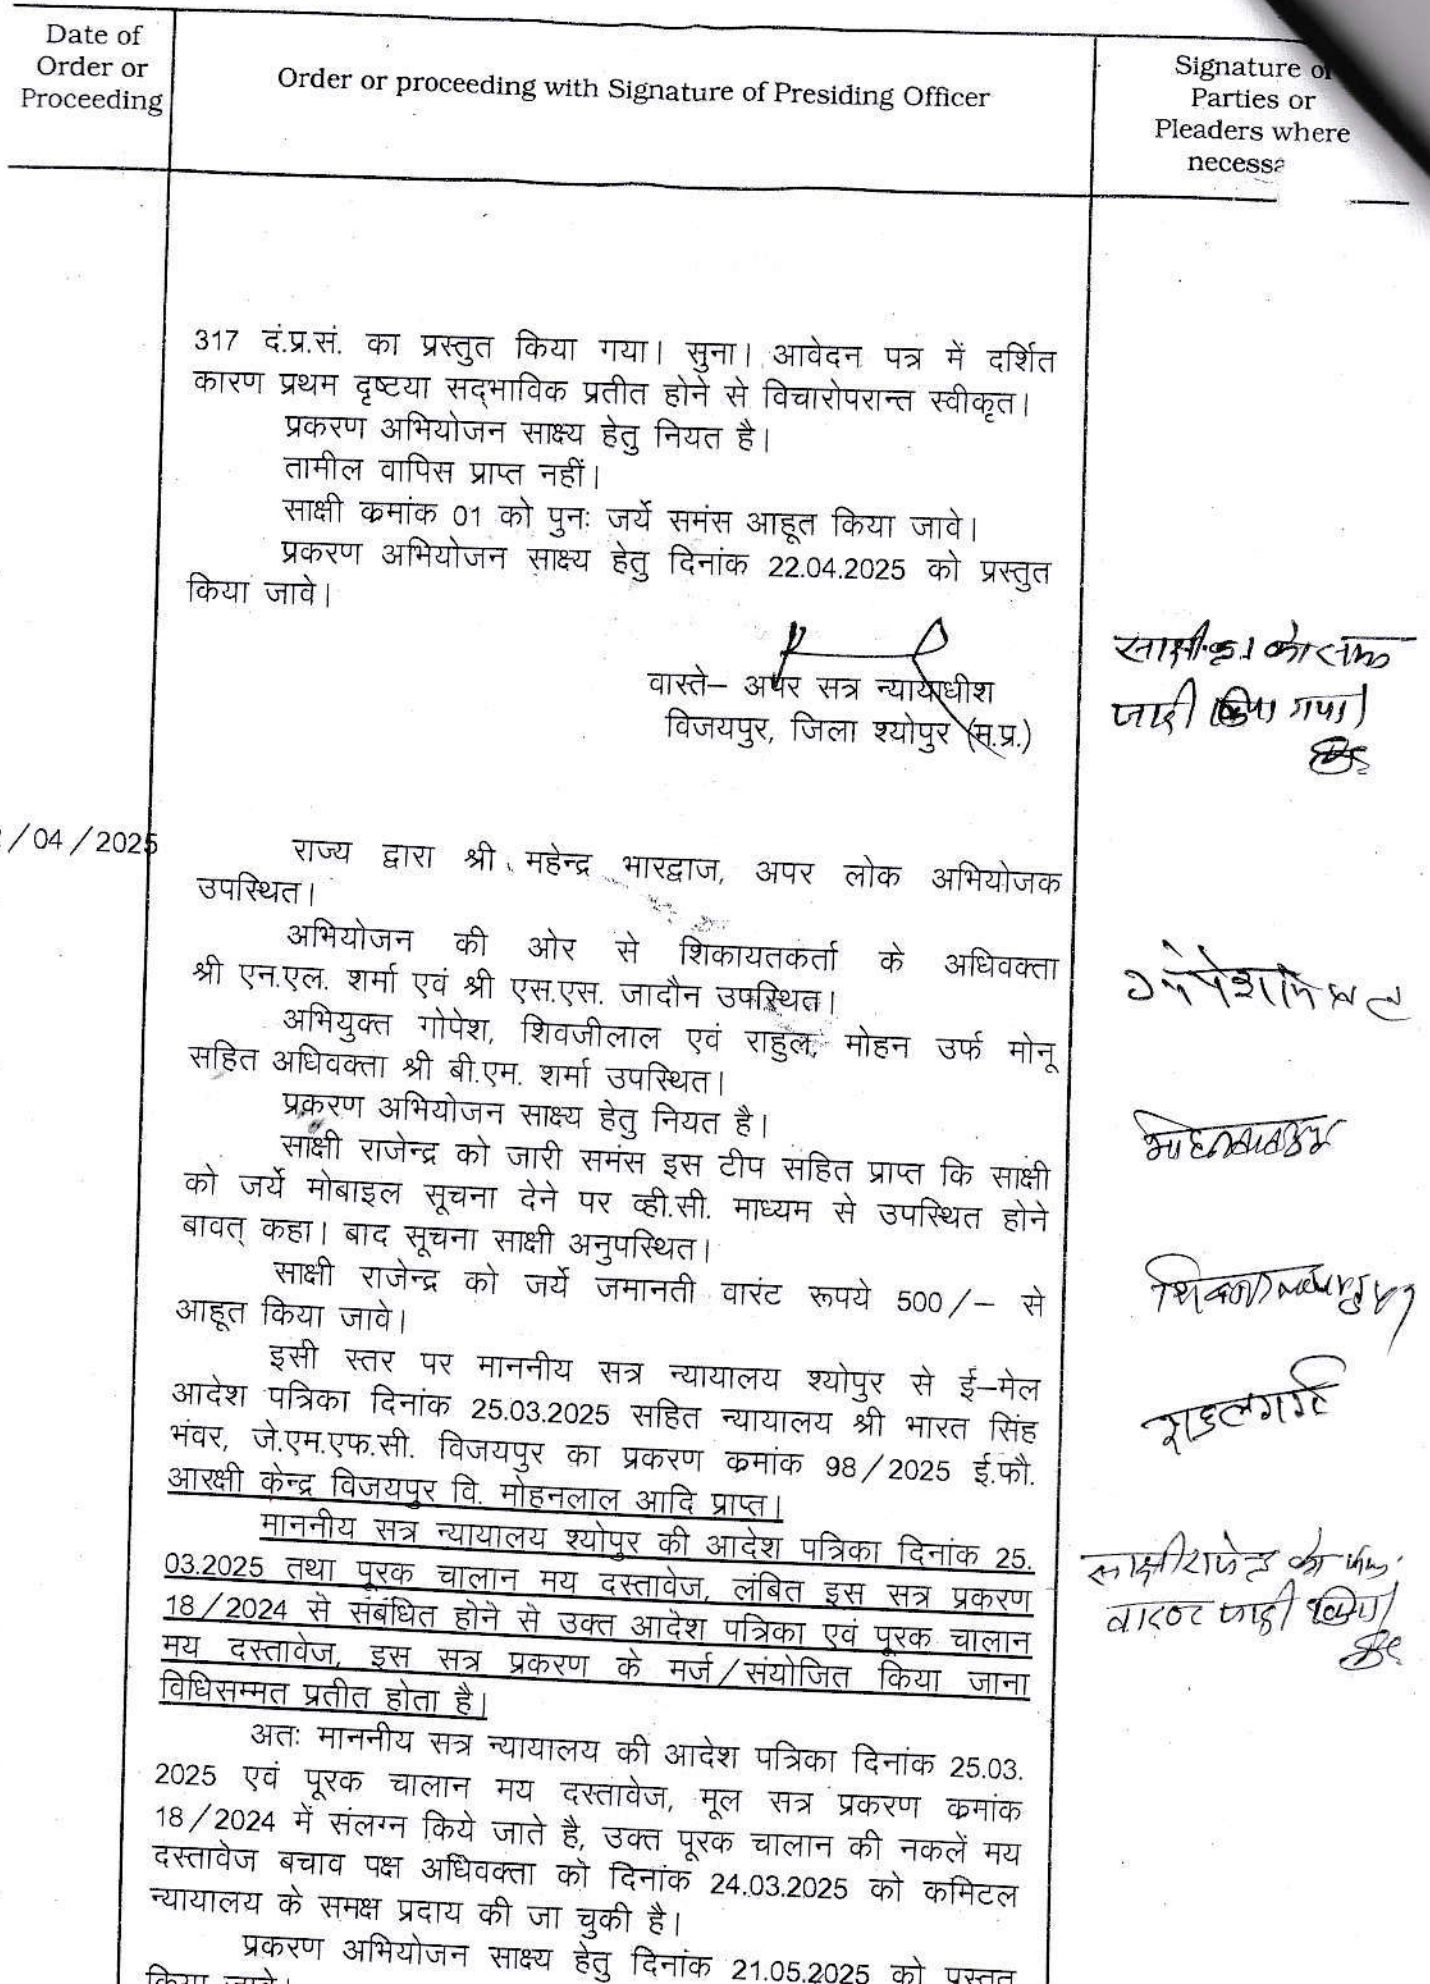 Date of
Order or
Proceeding
Order or proceeding with Signature of Presiding Officer
Signature of
Parties or
Pleaders where
necessa
317 दं.प्र.सं. का प्रस्तुत किया गया। सुना। आवेदन पत्र में दर्शित
कारण प्रथम दृष्टया सद्‌भाविक प्रतीत होने से विचारोपरान्त स्वीकृत।
प्रकरण अभियोजन साक्ष्य हेतु नियत है।
तामील वापिस प्राप्त नहीं।
साक्षी कमांक 01 को पुनः जर्ये समंस आहूत किया जावे।
प्रकरण अभियोजन साक्ष्य हेतु दिनांक 22.04.2025 को प्रस्तुत
किया जावे।
वास्ते– अपर सत्र न्यायाधीश
विजयपुर, जिला श्योपुर (म.प्र.)
जारी किया गया।
/04/2025
राज्य द्वारा श्री महेन्द्र भारद्वाज, अपर लोक अभियोजक
उपस्थित।
अभियोजन की ओर से शिकायतकर्ता के अधिवक्ता
श्री एन.एल. शर्मा एवं श्री एस.एस. जादौन उपस्थित।
अभियुक्त गोपेश, शिवजीलाल एवं राहुल, मोहन उर्फ मोनू
सहित अधिवक्ता श्री बी.एम. शर्मा उपस्थित।
प्रकरण अभियोजन साक्ष्य हेतु नियत है।
साक्षी राजेन्द्र को जारी समंस इस टीप सहित प्राप्त कि साक्षी
को जर्ये मोबाइल सूचना देने पर व्ही.सी. माध्यम से उपस्थित होने
बावत् कहा। बाद सूचना साक्षी अनुपस्थित।
साक्षी राजेन्द्र को जर्ये जमानती वारंट रूपये 500/– से
आहूत किया जावे।
इसी स्तर पर माननीय सत्र न्यायालय श्योपुर से ई–मेल
आदेश पत्रिका दिनांक 25.03.2025 सहित न्यायालय श्री भारत सिंह
भंवर, जे.एम.एफ.सी. विजयपुर का प्रकरण कमांक 98/2025 ई.फौ.
आरक्षी केन्द्र विजयपुर वि. मोहनलाल आदि प्राप्त।
राहुलगर्ग
माननीय सत्र न्यायालय श्योपुर की आदेश पत्रिका दिनांक 25.
03.2025 तथा पूरक चालान मय दस्तावेज, लंबित इस सत्र प्रकरण
18/2024 से संबंधित होने से उक्त आदेश पत्रिका एवं पूरक चालान
मय दस्तावेज, इस सत्र प्रकरण के मर्ज/संयोजित किया जाना
विधिसम्मत प्रतीत होता है।
साक्षी राजेन्द्र को
वारण्ट जारी किया
अतः माननीय सत्र न्यायालय की आदेश पत्रिका दिनांक 25.03.
2025 एवं पूरक चालान मय दस्तावेज, मूल सत्र प्रकरण कमांक
18/2024 में संलग्न किये जाते है, उक्त पूरक चालान की नकलें मय
दस्तावेज बचाव पक्ष अधिवक्ता को दिनांक 24.03.2025 को कमिटल
न्यायालय के समक्ष प्रदाय की जा चुकी है।
प्रकरण अभियोजन साक्ष्य हेतु दिनांक 21.05.2025 को प्रस्तुत
किया जावे।